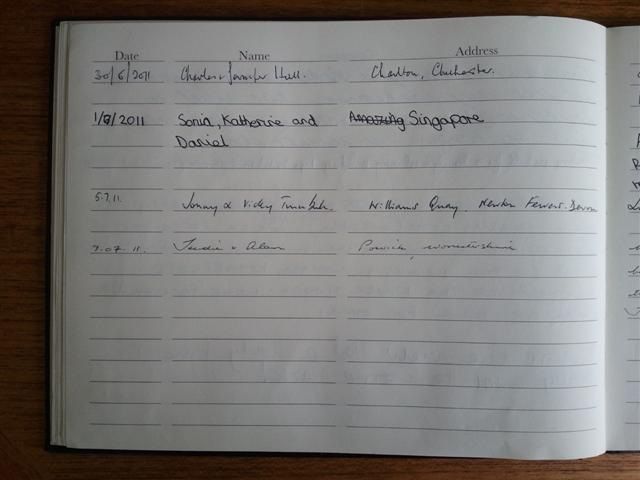 Date Name Address
30/6/2011 Charles & Jennifer Hall. Charlton, Chichester.
1/7/2011 Sonia, Katherine and Amazing Singapore
Daniel
5.7.11. Jonny & Vicky Williams Quay. Newton Ferrers. Devon
7.07.11. & Alan Powick, Worcestershire